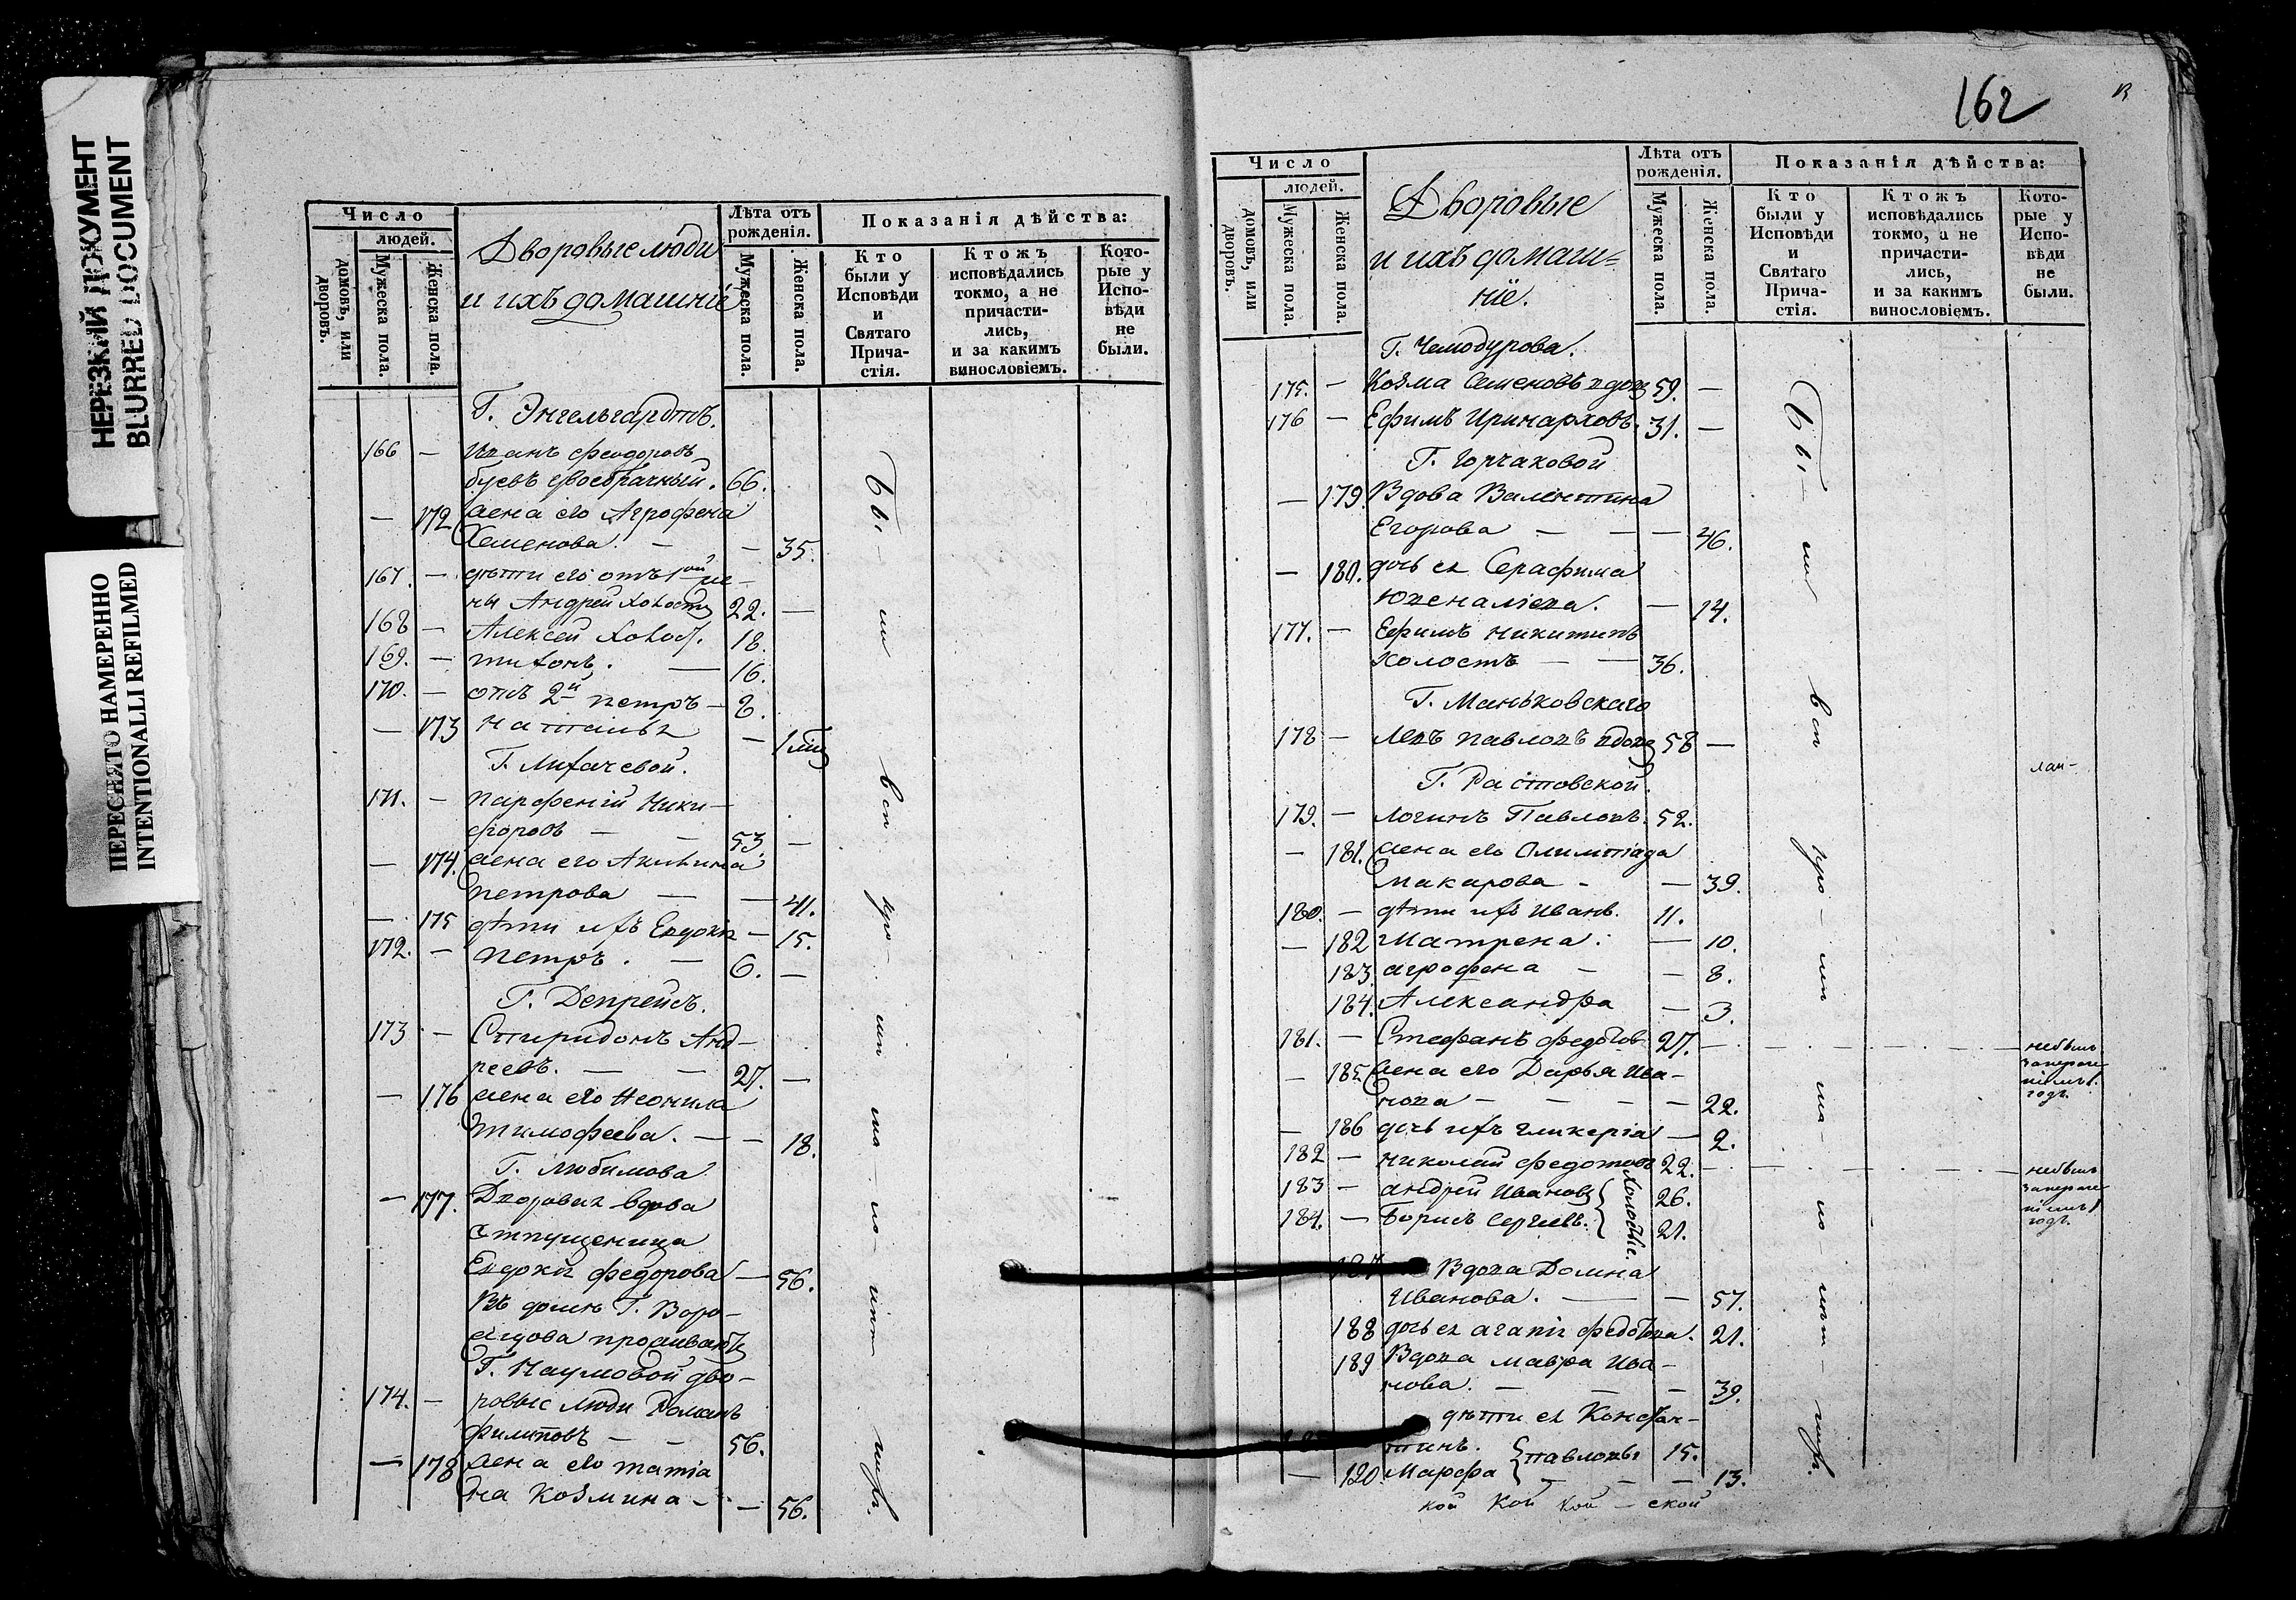 НЕРЕЗКИЙ ДОКУМЕНТ
BLURRED DOCUMENT
ПЕРЕСНЯТО НАМЕРЕННО
INTENTIONALLI REFILMED
Число
людей.
домовъ, или дворовъ.
Мужеска пола.
Женска пола.
Дворовые люди
и ихъ домашніе
Лѣта отъ рожденія.
Мужеска пола.
Женска пола.
Показанія дѣйства:
Кто были у Исповѣди и Святаго Прича-стія.
Ктожъ исповѣдались токмо, а не причасти-лись, и за какимъ винословіемъ.
Кото-рые у Испо-вѣди не были.
Г. Энгельгардтъ.
166 — Иванъ Феодоровъ
двоебрачный. 66.
— 172 жена его Агрофена
Семенова. — — 35.
167. — дѣти его отъ 1ой же-
ны Андрей холостъ 22. —
168 — Алексей холос. 18.
169. — тихонъ. — 16.
170. — отъ 2й петръ — 8.
— 173 Наталья — 1
Г. Лихачевой.
171. — парфеній Ники-
форовъ — — 53. —
— 174. жена его Акилина
петрова — — 41.
— 175 дѣти ихъ Евдокія — 15.
172. — петръ. — 6. —
Г. Депрейсъ.
173 — Спиридонъ Анд-
реевъ. — — 27. —
— 176 жена его Неонила
тимофеева. — — 18.
Г. Любимова
— 177. Дворовая вдова
отпущеница
Евдокія федорова — 56.
Въ домѣ Г. Воро-
жцова проживаютъ
Г. Наумовой дво-
174. — ровые люди Романъ
филиповъ — — 56.
— 178 жена его татіа
на Козмина — — 56.
бы — ли вси у испо — вѣ
162
Число
людей.
домовъ, или дворовъ.
Мужеска пола.
Женска пола.
Дворовые
и ихъ домаш=
ніе.
Лѣта отъ рожденія.
Мужеска пола.
Женска пола.
Показанія дѣйства:
Кто были у Исповѣди и Святаго Прича-стія.
Ктожъ исповѣдались токмо, а не причасти-лись, и за какимъ винословіемъ.
Кото-рые у Испо-вѣди не были.
Г. Чемодурова.
175. — Козма Семеновъ вдов 59. —
176 — Ефимъ Иринарховъ. 31. —
Г. Горчаковой
— 179. Вдова Валентина
Егорова — — — 46.
— 180. дочь ея Серафима
Ювеналіева. — 14.
177. — Ефимъ никитинъ
холостъ — — 36.
Г. Маньковскаго
178 — Левъ павловъ вдов 58 —
Г. Растовской.
179. — Логинъ Павловъ. 52.
— 181. жена его Олимпіада
Макарова — — 39.
180. — дѣти ихъ Иванъ. 11.
— 182 Матрена. — 10.
183. агрофена — — 8.
184. Александра — 3.
181. — Стефанъ федотовъ 27. — небылъ
— 185. жена его Дарья Ива-
нова — — — — 22.
— 186 дочь ихъ гликерія — 2.
182 — николай федотовъ 22. — небылъ
183 — андрей Ивановъ 26.
184. — Борисъ Сергеевъ. 21.
холостые.
187 Вдова Домна
Иванова. — — 57.
188 дочь ея агапія федотова. 21.
189 Вдова мавра Ива-
нова. — — — 39.
дѣти ея Констан-
тинъ. павловы 15.
— 190 Марфа — — — 13.
кой кой кой — ской